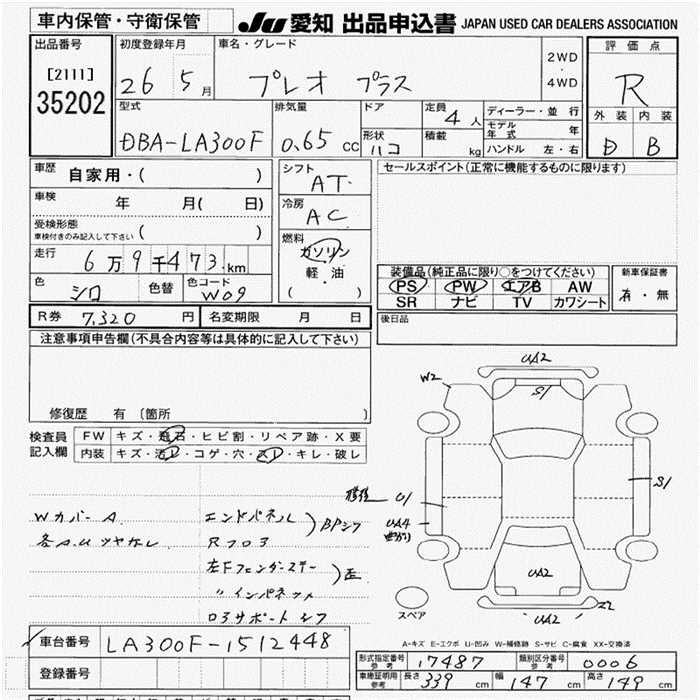 車内保管・守衛保管
JU 愛知 出品申込書 JAPAN USED CAR DEALERS ASSOCIATION
出品番号 初度登録年月 車名・グレード 評価点
[2111] 2WD
35202 26 5月 プレオ プラス ・ R
4WD
型式 排気量 ドア 定員 4人 ディーラー・並行 外装 内装
モデル年式 年
DBA-LA300F 0.65cc 形状 ハコ 積載 kg ハンドル 左・右 D B
車歴 自家用・( ) シフト AT セールスポイント(正常に機能するものに限ります)
車検 年 月( 日) 冷房 AC
受検形態
車検付きのみ記入して下さい ( ) 燃料
走行 6万9千473km ガソリン
軽・油
( )
装備品(純正品に限り○をつけてください) 新車保証書
色 シロ 色替 色コード W09 PS PW エアB AW 有・無
SR ナビ TV カワシート
R券 7,320円 名変期限 月 日 後日品
注意事項申告欄(不具合内容等は具体的に記入して下さい)
修復歴 有(箇所 )
検査員記入欄 FW キズ・飛石・ヒビ割・リペア跡・X要
内装 キズ・汚レ・コゲ・穴・スレ・キレ・破レ
UA2
W2
S1
S1
U1
UA4
UA2
UA2
スペア
Wカバー A
各A.U ツヤなし
エンドパネル
Rフロア
左Fフェンダーステー
〃インパネット
ロアサポート シフ
車台番号 LA300F-1512448
登録番号
A-キズ E-エクボ U-凹み W-補修跡 S-サビ C-腐食 XX-交換済
形式指定番号 参考 17487 類別区分番号 参考 0006
車庫証明用 参考 長さ 339cm 幅 147cm 高さ 149cm